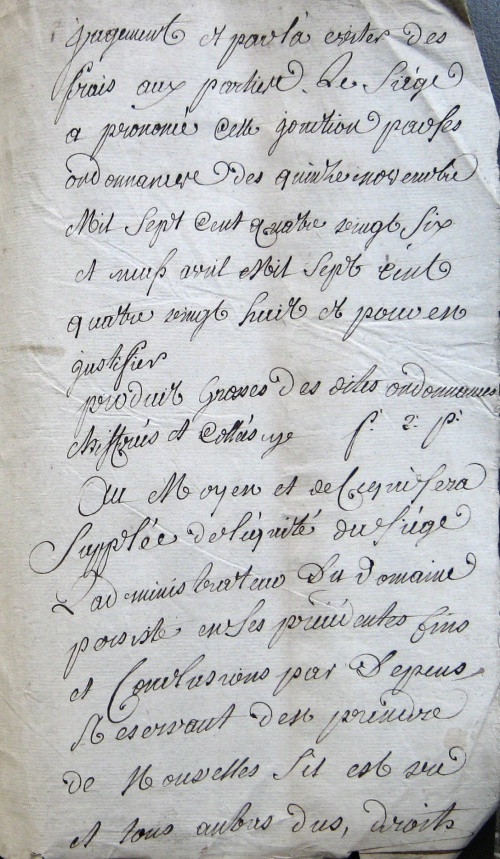 jugement et par là eviter des
frais aux parties. Le Siége
a prononcé cette jonction par ses
ordonnances des quinze novembre
Mil Sept Cent quatre vingt Six
et neuf avril Mil Sept cent
quatre vingt huit et pour en
justifier
produit Grosses des dites ordonnances
chiffrées et Cottées f. 2. p.
Au Moyen et de Ce qui Sera
Supplée de l'equité du Siége
L'administrateur Du Domaine
persiste en Ses précédentes fins
et Conclusions par Depens
Se Reservant d'en prendre
de Nouvelles Sil est vu
et tous autres dus, droits